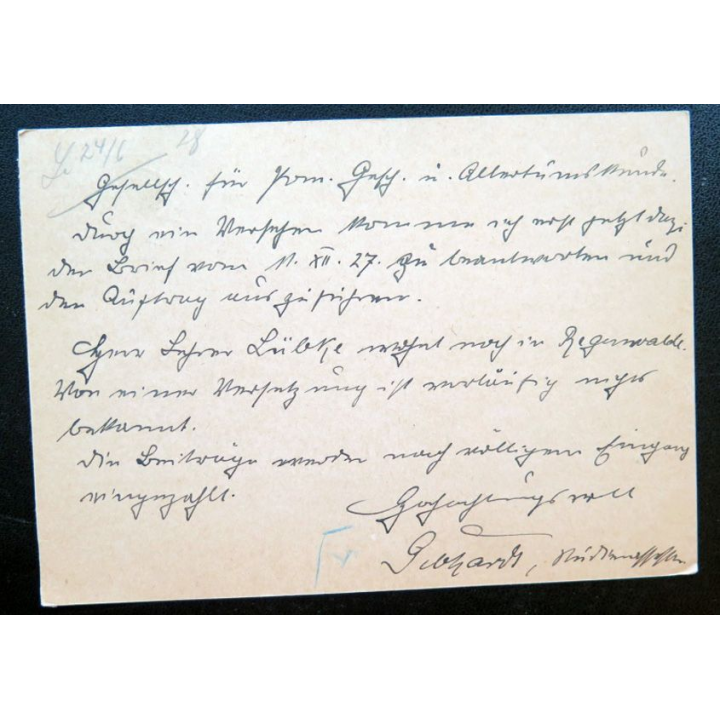 24/6 28
Gesellsch. für Pom. Gesch. u. Altertumskunde.
Durch ein Versehen komme ich erst jetzt dazu
den Brief vom 11. XII. 27. zu beantworten und
den Auftrag auszuführen.
Herr Lehrer Lübke wohnt noch in Regenwalde.
Von einer Versetzung ist vorläufig nichts
bekannt.
Die Beiträge werden nach völligem Eingang
eingezahlt.
Hochachtungsvoll
Gebhardt,